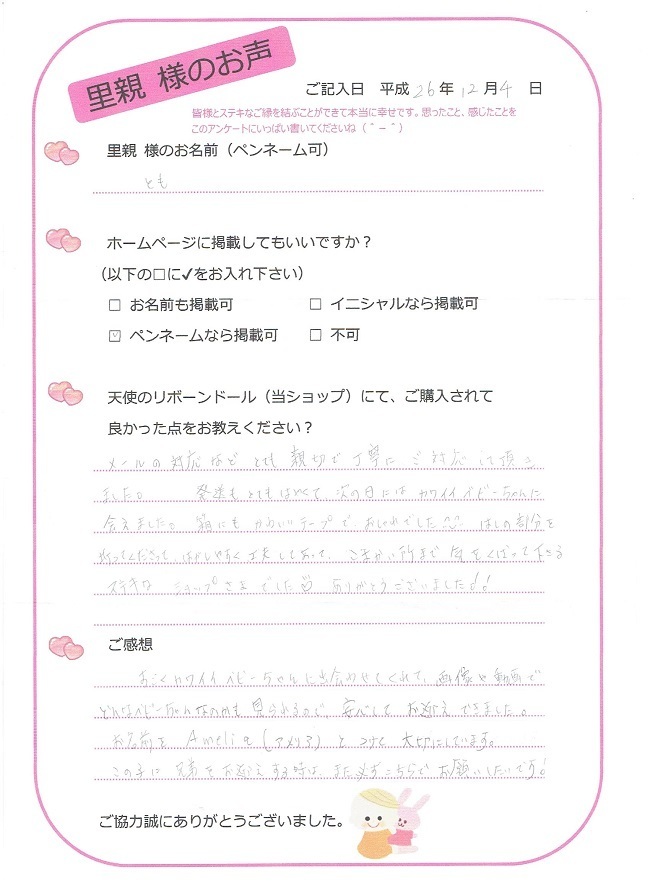 里親 様のお声
ご記入日 平成 26 年 12 月 4 日
皆様とステキなご縁を結ぶことができて本当に幸せです。思ったこと、感じたことを
このアンケートにいっぱい書いてくださいね（＾－＾）
里親 様のお名前（ペンネーム可）
とも
ホームページに掲載してもいいですか？
（以下の□に✔をお入れ下さい）
□ お名前も掲載可 □ イニシャルなら掲載可
☑ ペンネームなら掲載可 □ 不可
天使のリボーンドール（当ショップ）にて、ご購入されて
良かった点をお教えください？
メールの対応など とても 親切で丁寧に ご対応して頂き
ました。 発送もとてもはやくて 次の日には カワイイベビーちゃんに
会えました。箱にも かわいいテープで、おしゃれでした はしの部分を
折ってくださって、はがしやすく工夫してあって、こまかい所まで 気をくばって下さる
ステキな ショップさま でした ありがとうございました!!
ご感想
すごくカワイイ ベビーちゃんに出会わせてくれて、画像や動画で
どんなベビーちゃんなのかも 見られるので、安心して お迎え できました。
お名前を Amelia (アメリア) と つけて 大切にしています。
この子に 兄弟を お迎え する時は、また必ずこちらで お願いしたいです!
ご協力誠にありがとうございました。